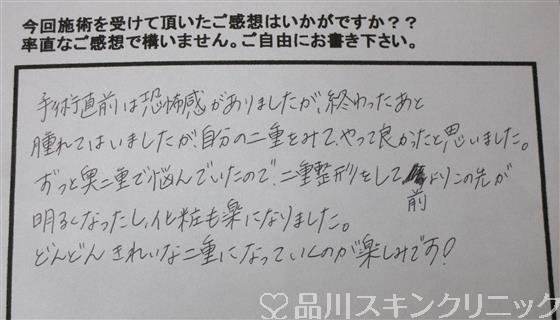 今回施術を受けて頂いたご感想はいかがですか？？
率直なご感想で構いません。ご自由にお書き下さい。
手術直前は恐怖感がありましたが、終わったあと
腫れてはいましたが、自分の二重をみて、やって良かったと思いました。
ずっと奥二重で悩んでいたので、二重整形をして前よりこの先が
明るくなったし、化粧も楽になりました。
どんどんきれいな二重になっていくのが楽しみです！
品川スキンクリニック